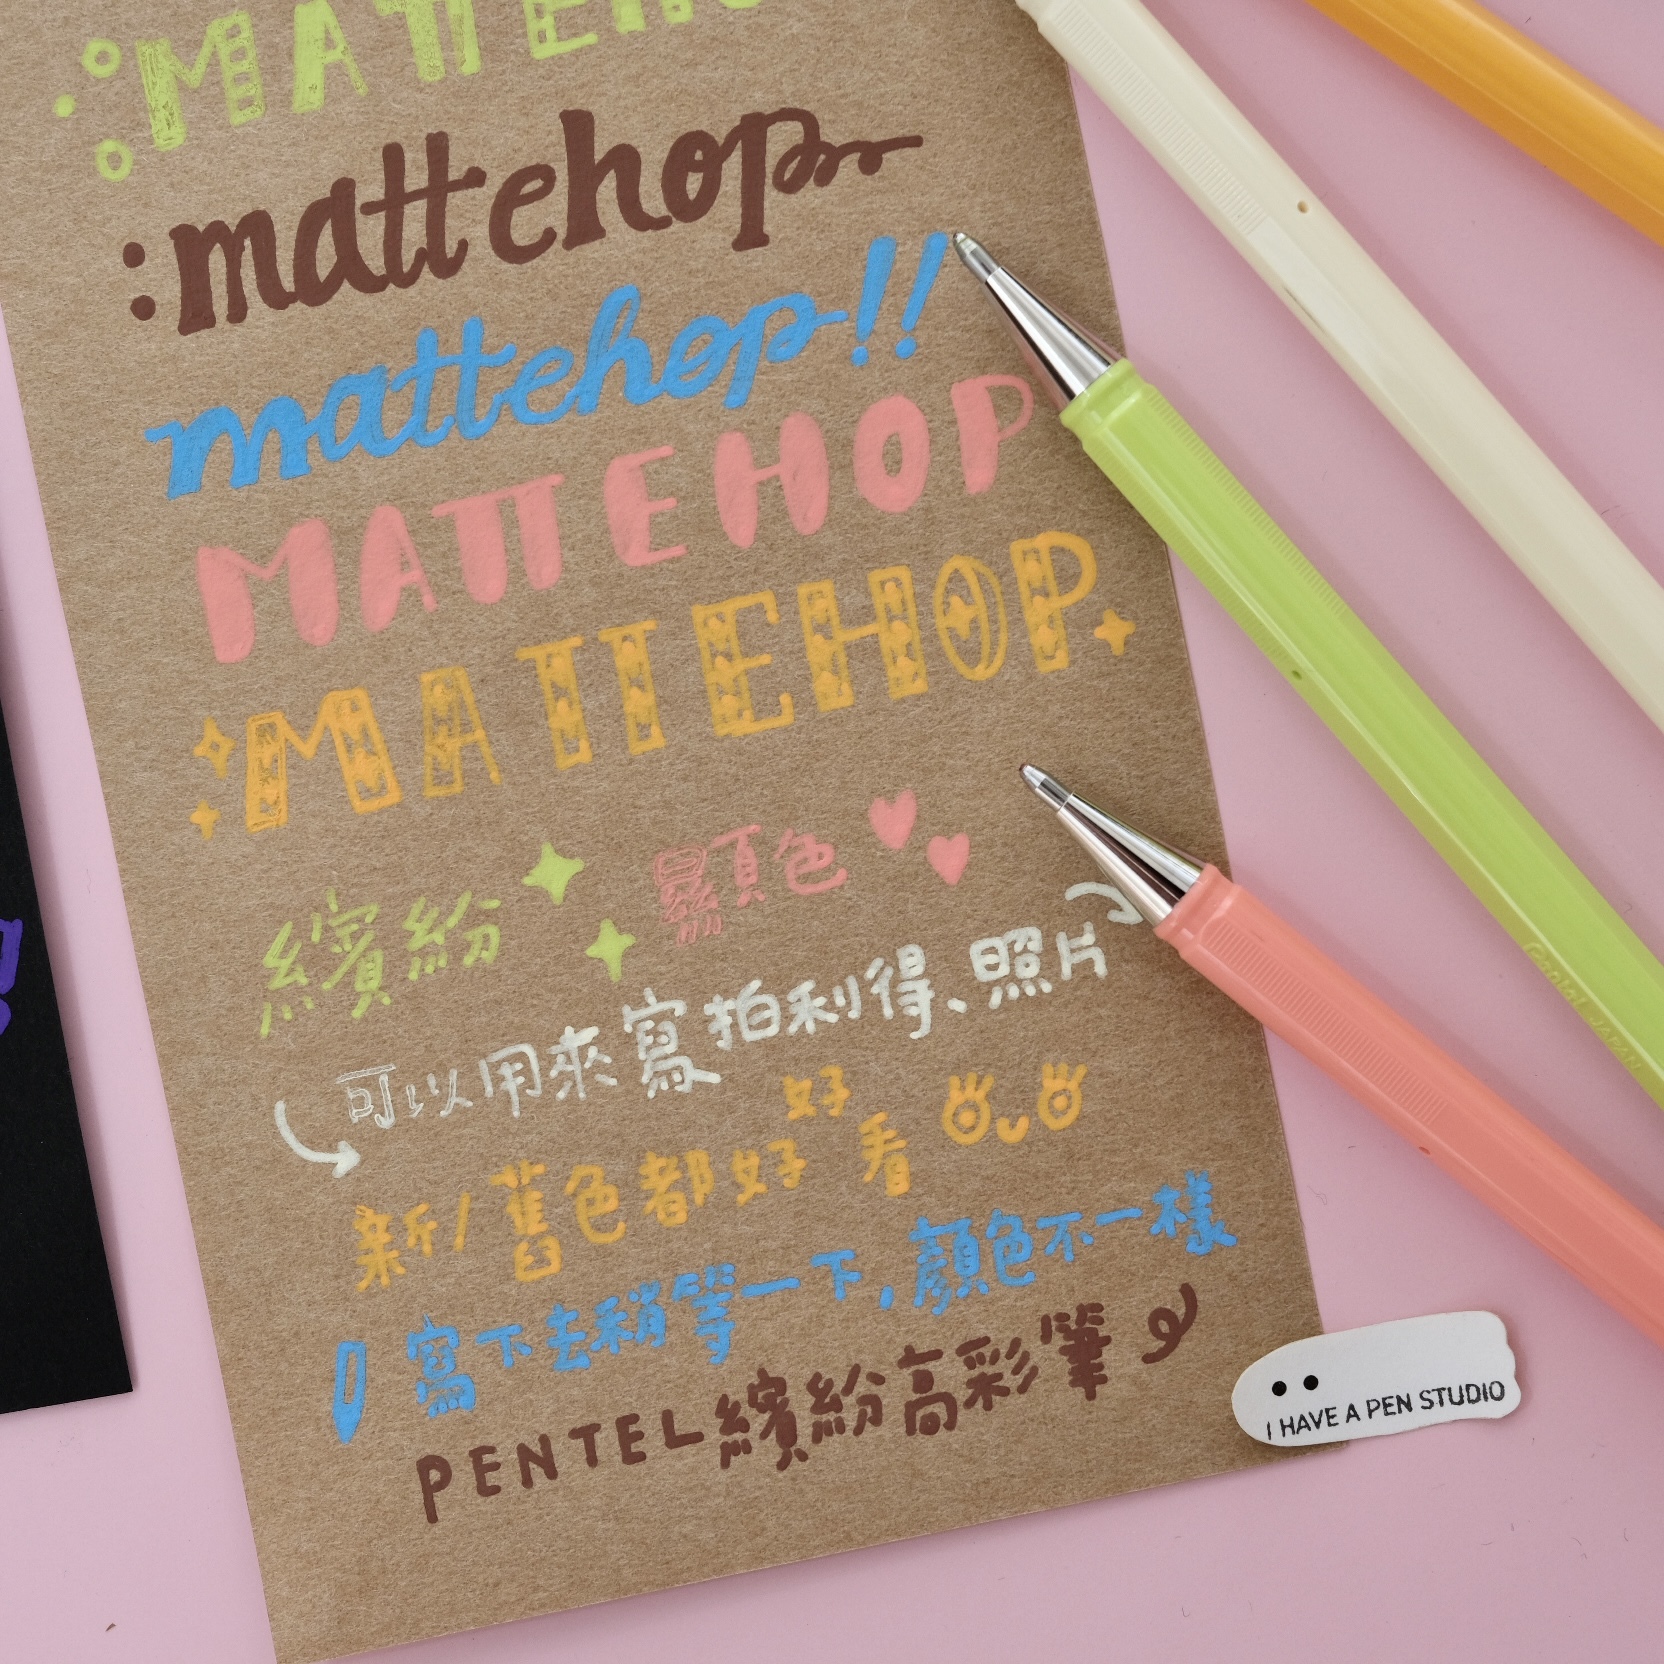 :MATTEHO
:mattehop
mattehop!!
MATTEHOP
MATTEHOP
繽紛 顯色
可以用來寫拍利得、照片
新/舊色都好好看
寫下去稍等一下,顏色不一樣
PENTEL繽紛高彩筆
Pentel JAPAN
I HAVE A PEN STUDIO